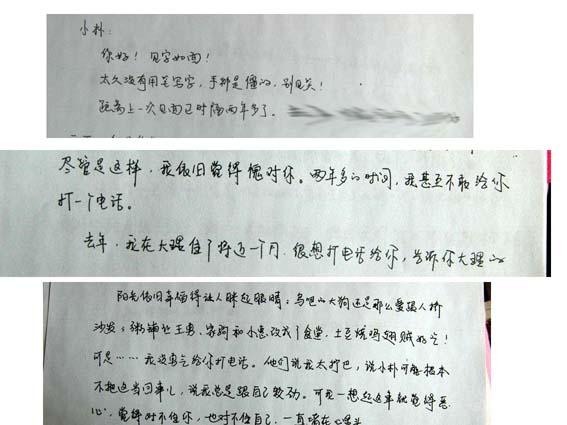 小朴：
你好！见字如面！
太久没有用笔写字，手都是僵的，别见笑！
距离上一次见面已时隔两年多了。
尽管是这样，我依旧觉得愧对你。两年多的时间，我甚至不敢给你
打一个电话。
去年，我在大理住了将近一个月，很想打电话给你，告诉你大理的
阳光依旧幸福得让人眯起眼睛；鸟吧的大狗还是那么爱跟人挤
沙发；粥铺让王勇、岩驹和小惠改成了食堂，土豆烧鸡翅贼好吃！
可是……我没勇气给你打电话。他们说我太拧巴，说小朴可能根本
不把这当回事儿，说我总是跟自己较劲。可我一想起这事就觉得恶
心，觉得对不住你，也对不住自己，一直堵在心里头